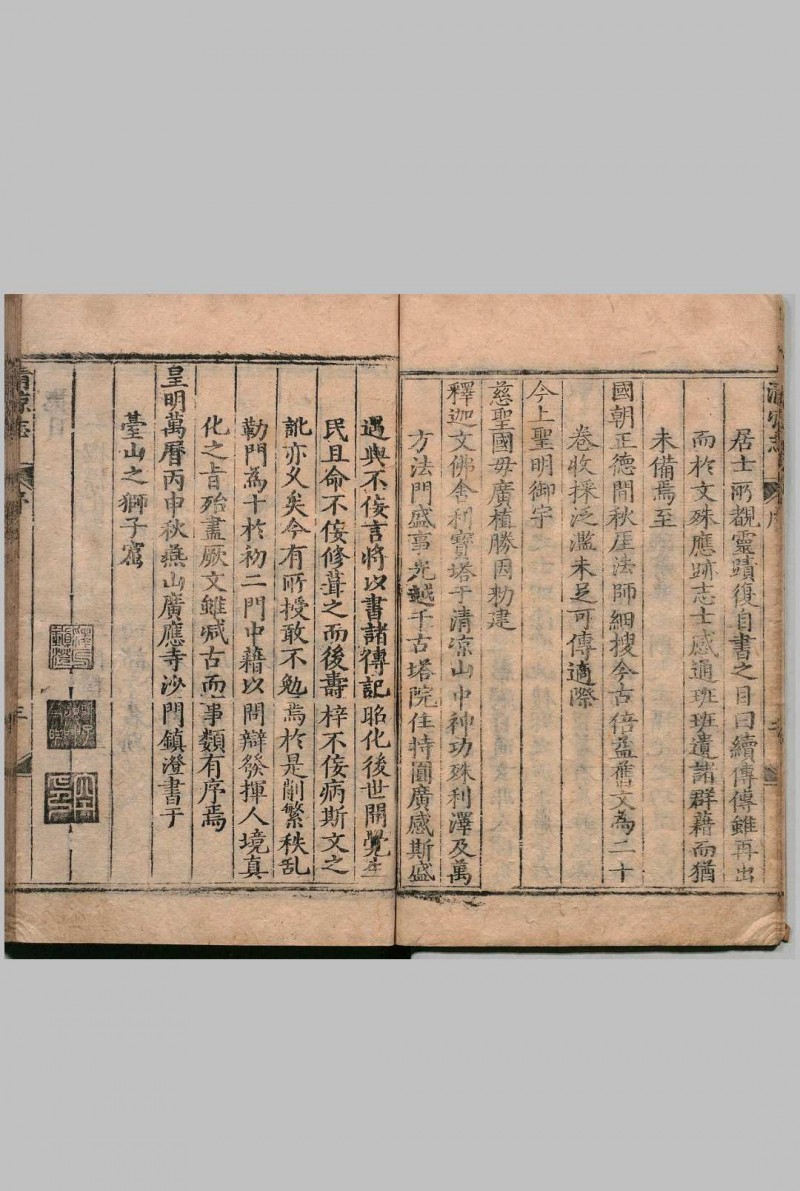 清凉志
序
居士所觀靈蹟復自書之目曰續傳傳雖再出
而於文殊應跡志士感通班班遺諸群藉而猶
未備焉至
國朝正德間秋厓法師細搜今古倍益舊文為二十
卷收採泛濫未足可傳適際
今上聖明御宇
慈聖國毋廣植勝因勑建
釋迦文佛舍利寶塔于清凉山中神功殊利澤及萬
方法門盛事光越千古塔院住持圓廣感斯盛
遇與不侫言將以書諸傳記昭化後世開覺生
民且命不侫修葺之而後壽梓不侫病斯文之
訛亦乆矣今有所授敢不勉焉於是削繁秩乱
勒門為十於初二門中藉以問辯發揮人境真
化之旨殆盡厥文雖諷古而事類有序焉
皇明萬曆丙申秋燕山廣應寺沙門鎮澄書于
臺山之獅子窟
清凉志
序